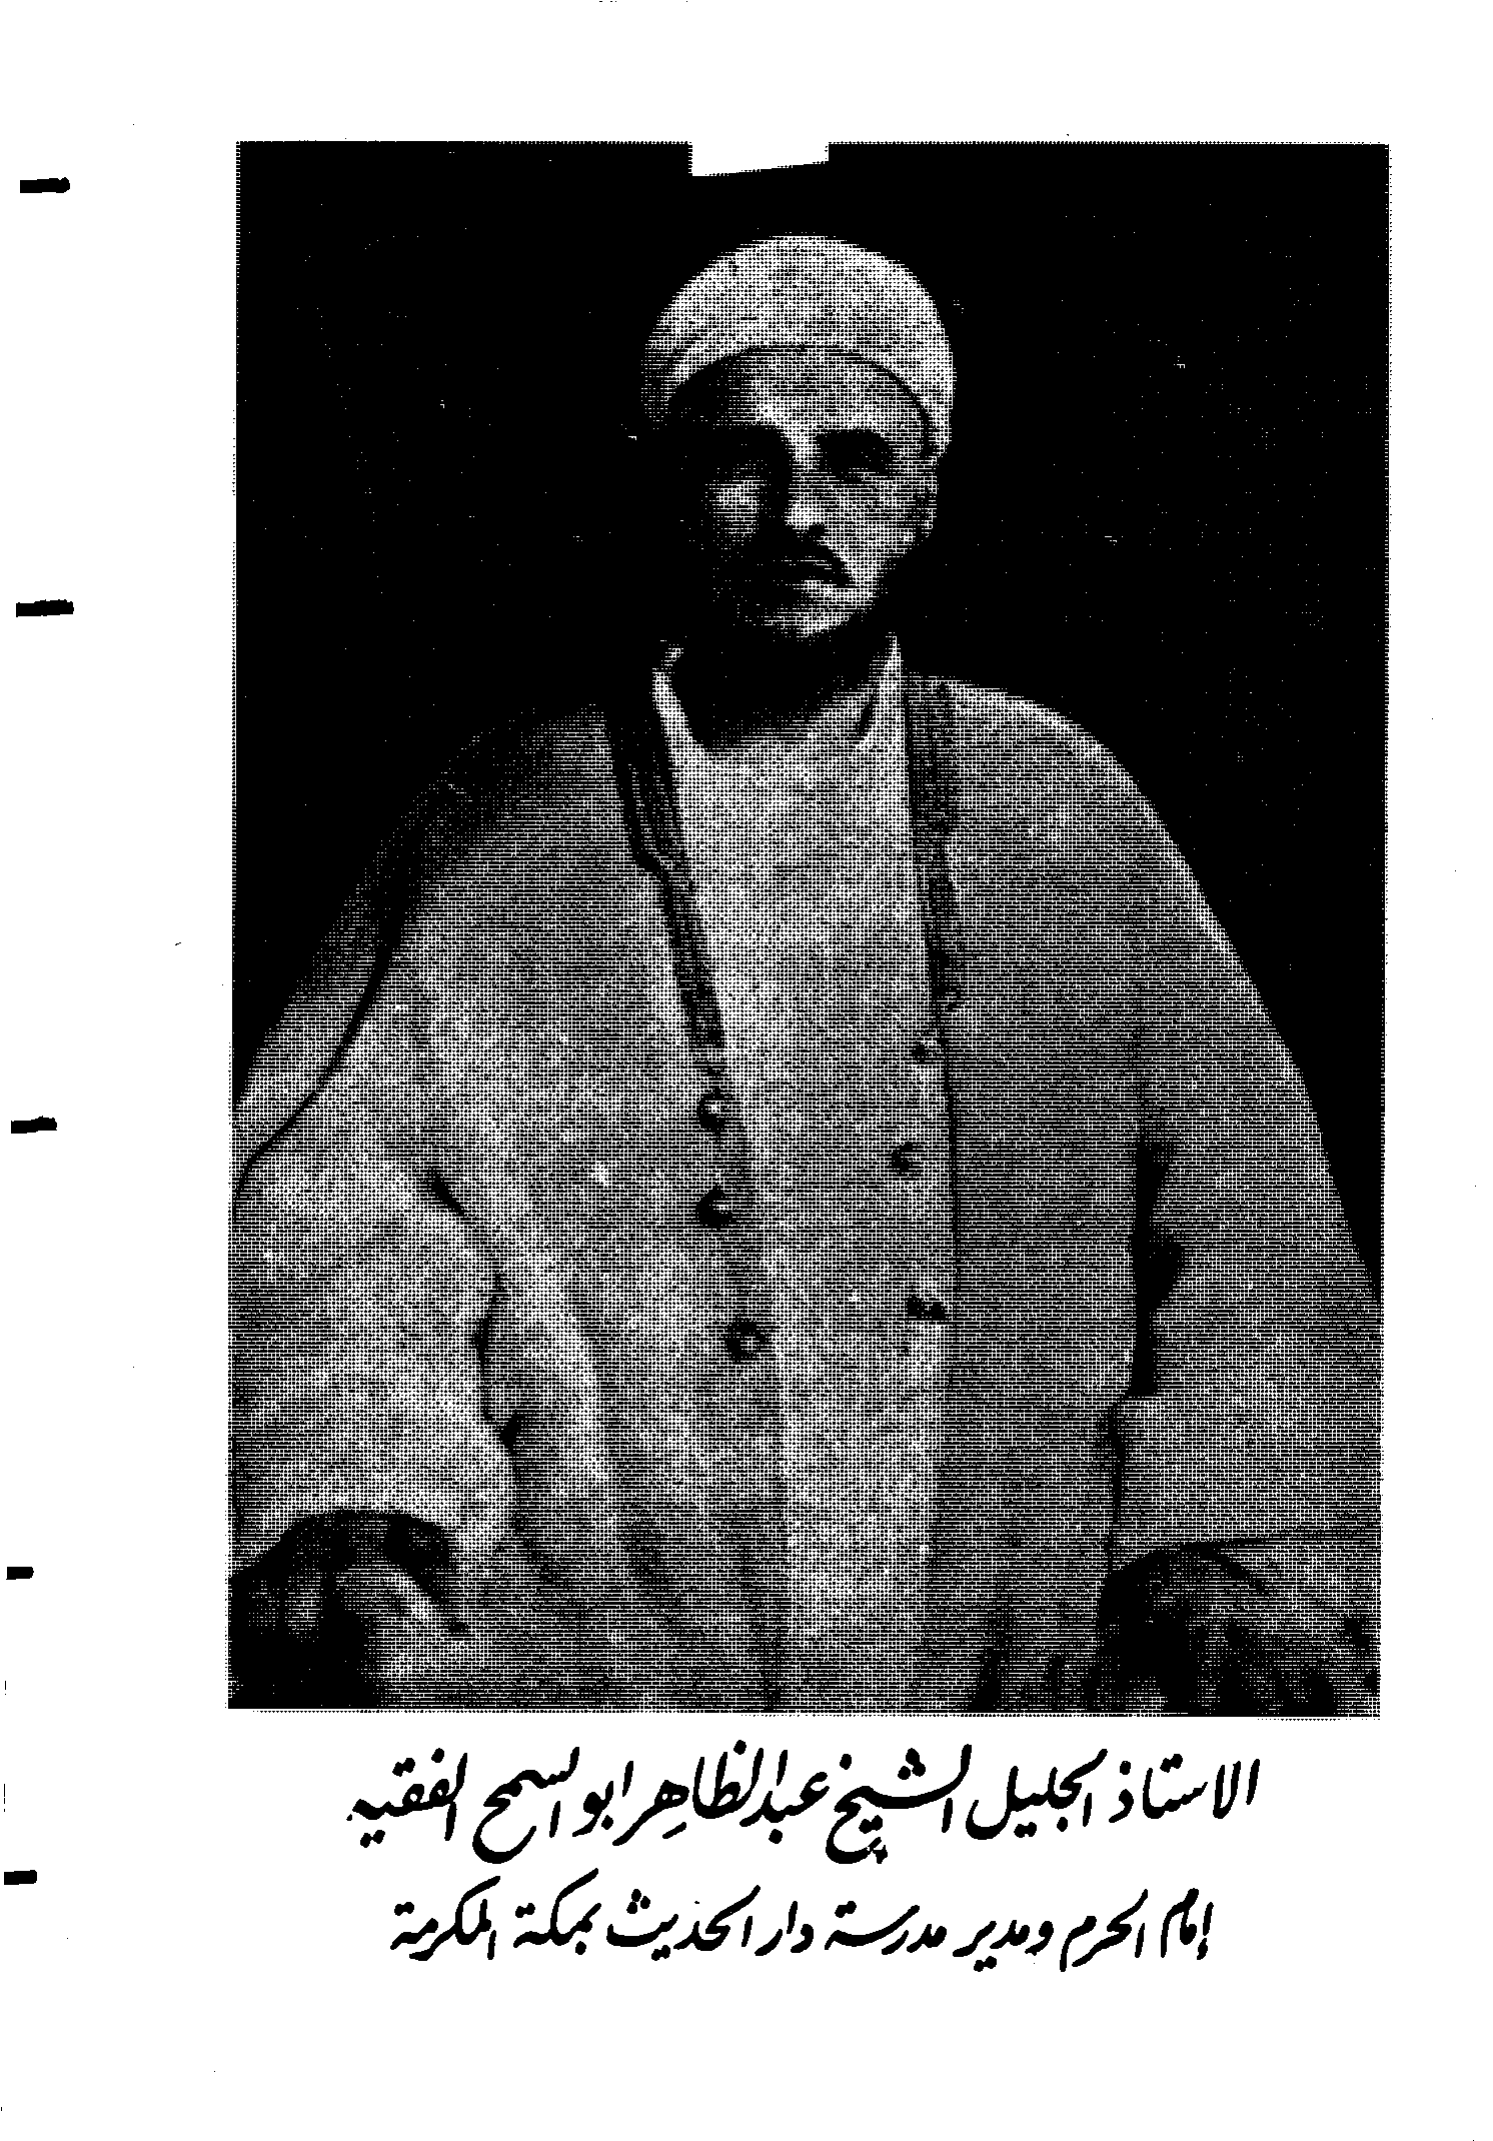 الاستاذ الجليل الشيخ عبدالظاهر ابو السمح الفقيه
إمام الحرم ومدير مدرسة دار الحديث بمكة المكرمة